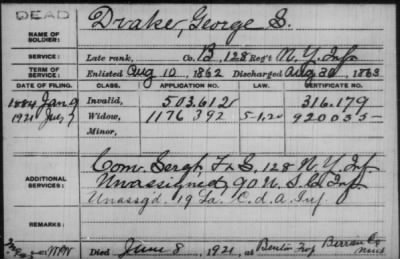 DEAD
NAME OF SOLDIER: Drake, George S.
SERVICE: Late rank, Co. B, 128 Reg't N.Y. Inf
TERM OF SERVICE: Enlisted Aug 10, 1862 Discharged Aug 30, 1863
DATE OF FILING. CLASS. APPLICATION NO. LAW. CERTIFICATE NO.
1884 Jan 9 Invalid, 503.612 316.179
1921 Widow, 1176 392 5-1,20 920035
Minor,
Com. Sergt, F & S, 128 N.Y. Inf
ADDITIONAL SERVICES: Unassigned, 90 U.S.C. Inf
Unassg'd 19 La. C.d.a. Inf
REMARKS:
Died June 8, 1921, at Benton Berrien Co